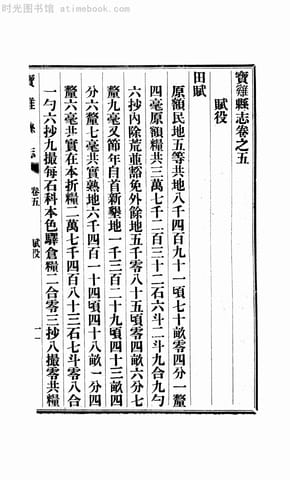 时光图书馆 - www.atimebook.com
寶雞縣志卷之五
賦役
田賦
原額民地五等共地八千四百九十一頃七十畝零四分一釐
四毫原額糧共三萬七千二百三十二石六斗二斗九合九勺
六抄內除荒蕪豁免外餘地五千零八十五頃零四畝六分七
釐九毫又節年自首新墾地一千三百二十九頃四十三畝四
分六釐七毫共實熟地六千四百一十四頃四十八畝一分四
釐六毫共實在本折糧二萬七千四百八十三石七斗零八合
一勺六抄九撮每石科本色驛倉糧二合零三抄八撮零共糧
寶雞縣志
卷五
賦役
一